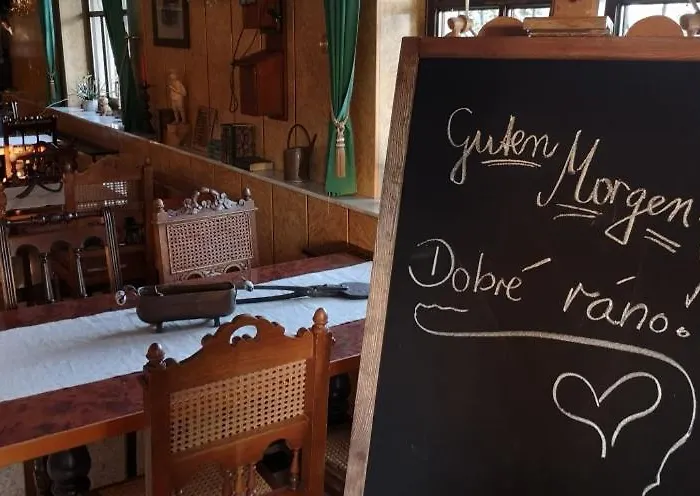 Guten
Morgen
Dobré ráno!